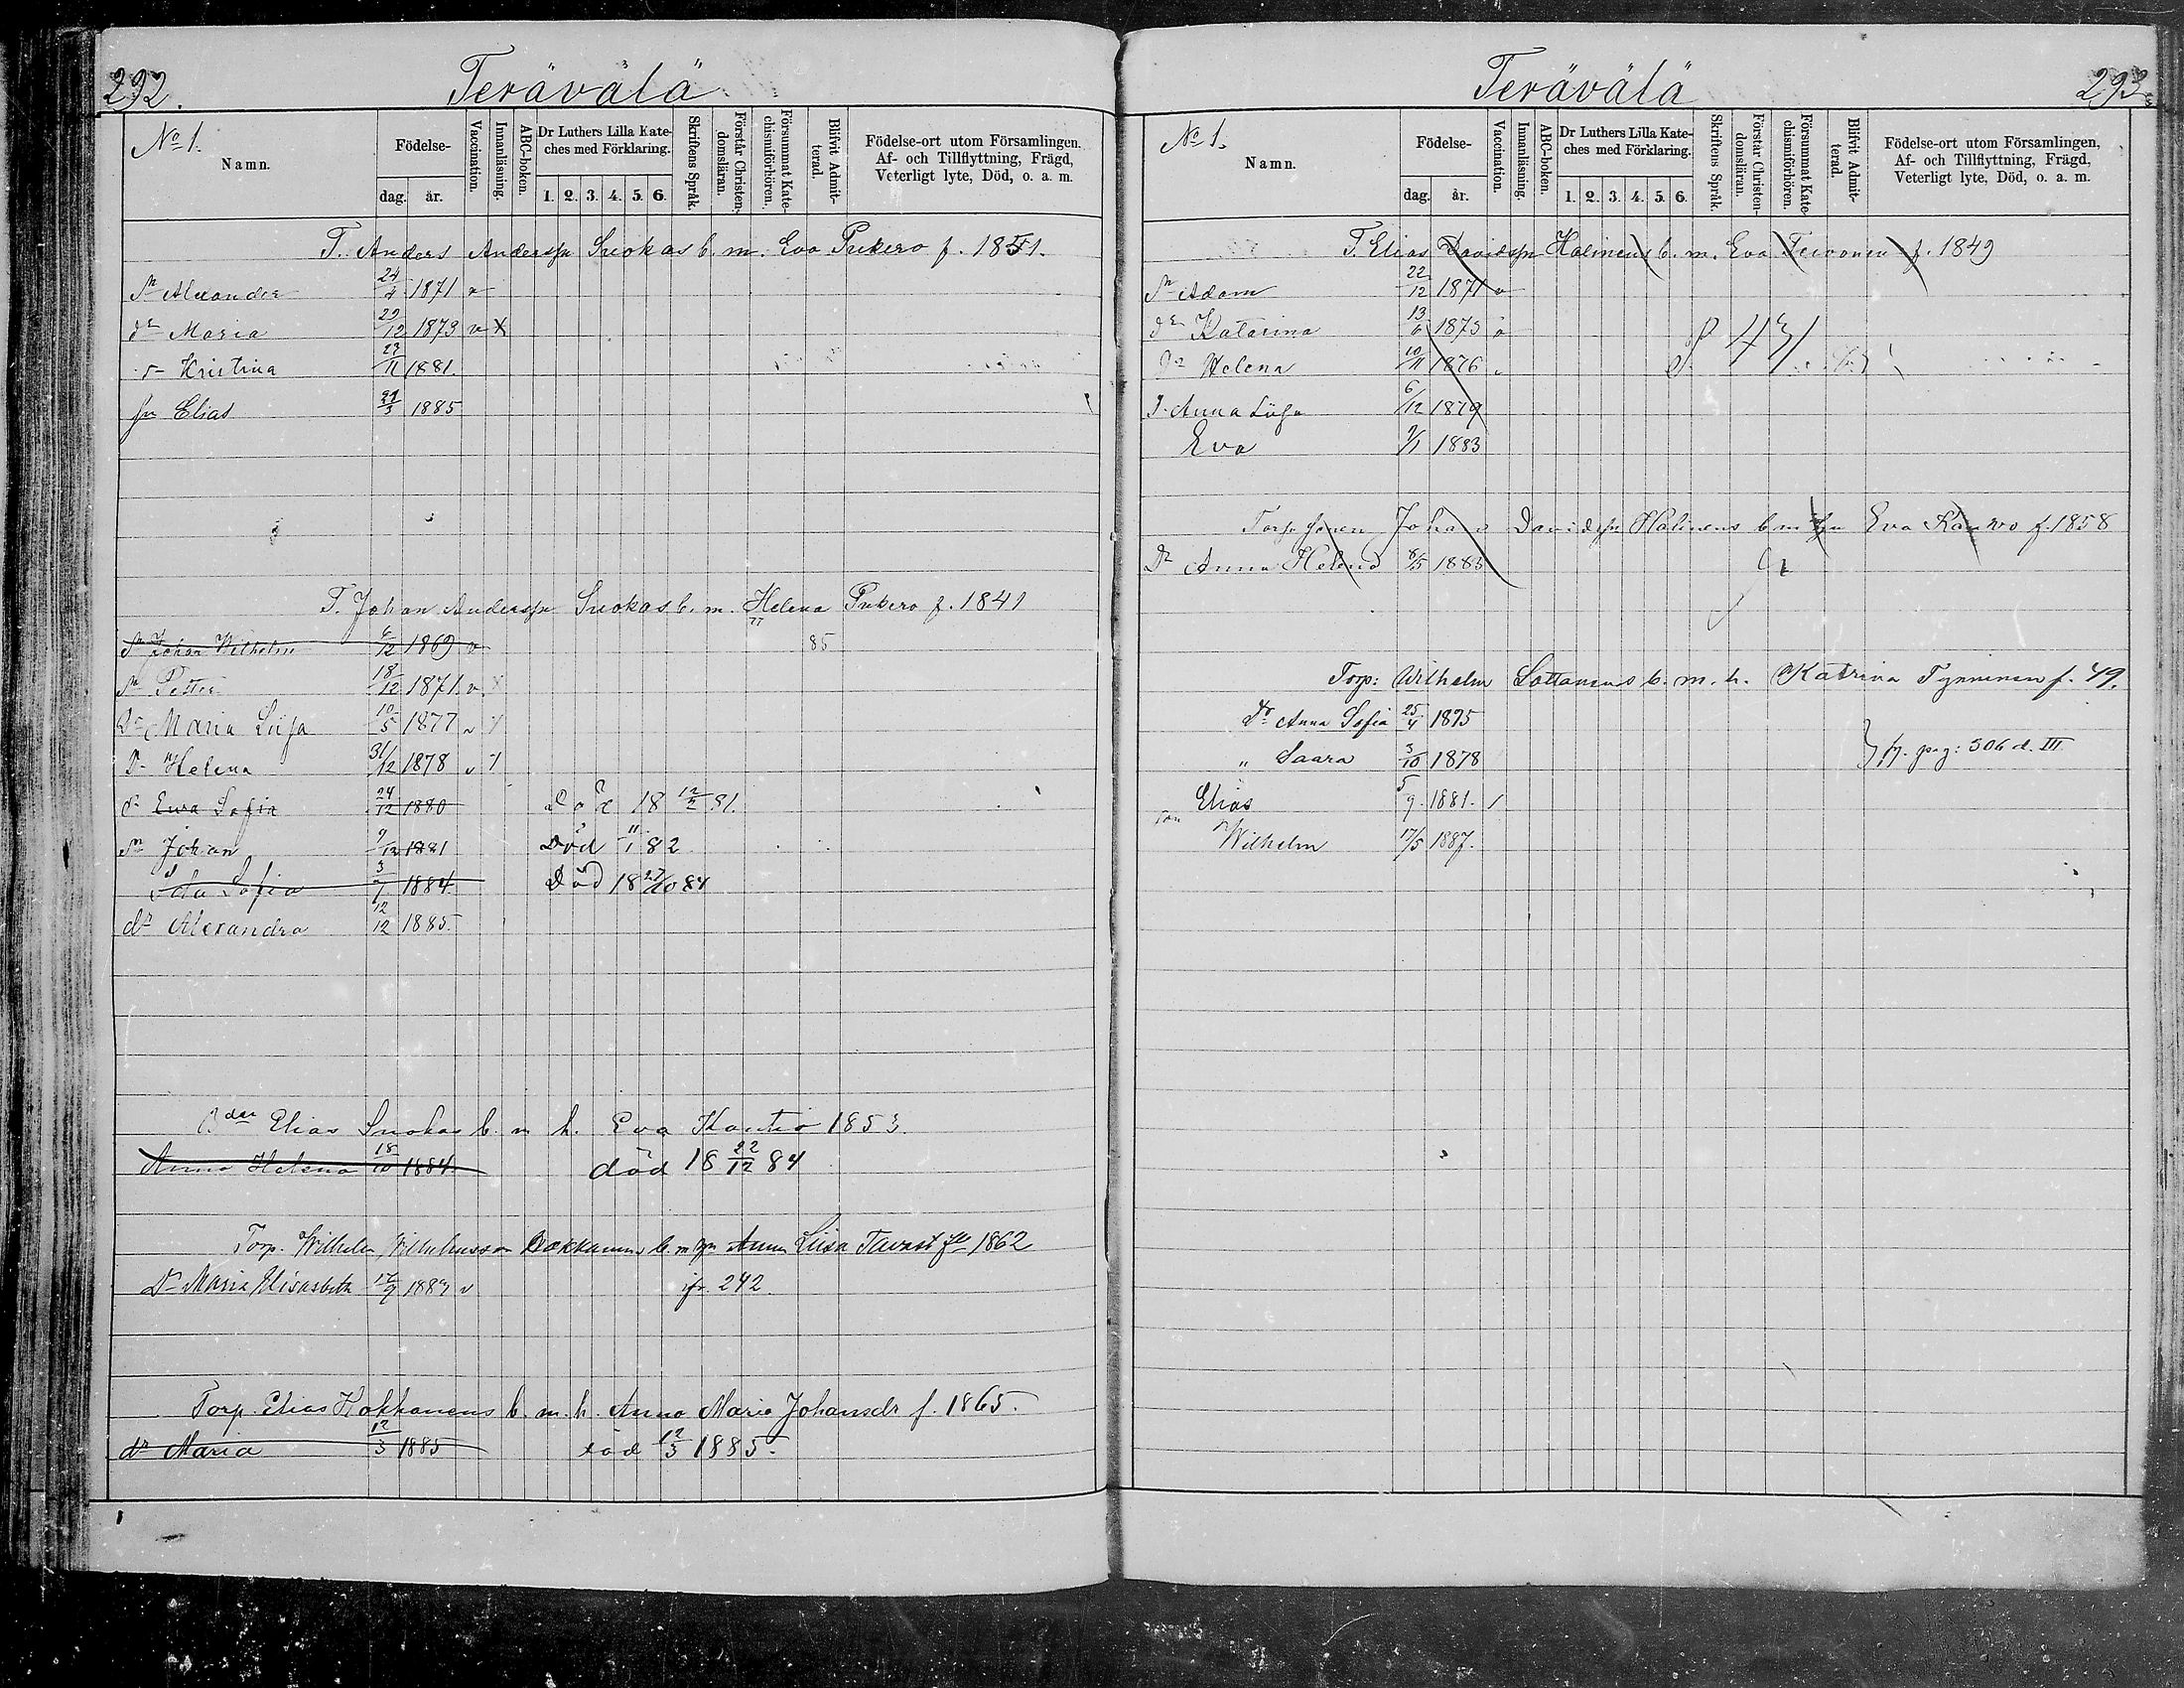 292.
Terävälä
No 1.
Namn.
Födelse-
dag. år.
Vaccination.
Innanläsning.
ABC-boken.
Dr Luthers Lilla Kate-
ches med Förklaring.
1. 2. 3. 4. 5. 6.
Skriftens Språk.
Förstår Christen-
domsläran.
Försummat Kate-
chismiförhören.
Blifvit Admit-
terad.
Födelse-ort utom Församlingen.
Af- och Tillflyttning, Frägd,
Veterligt lyte, Död, o. a. m.
T. Anders Anderssn Suokas b. m. Eva Pukero f. 1851.
Sn Alexander 24/4 1871 v
dr Maria 29/12 1873 v x
dr Kristina 23/11 1881.
sn Elias 21/3 1885
T. Johan Anderssn Suokas b. m. Helena Pukero f. 1841
Sn Johan Wilhelm 6/12 1869 v 85
Sn Petter 18/12 1871 v x
Dr Maria Liisa 10/5 1877 v
Dr Helena 31/12 1878 v
dr Ewa Sofia 24/12 1880 Död 18 12/2 81.
Sn Johan 9/12 1881 Död 11/1 82
Ida Sofia 3/1 1884. Död 18 27/10 84
dr Alexandra 12/12 1885.
Elias Suokas b. m. h. Eva Kontio 1853.
Anna Helena 18/10 1884. död 18 22/12 84
Torp. Wilhelm Wilhelmsson b. m. Anna Liisa Tavast 1862
Dr Maria Elisabeth 17/9 1884 v 242.
Torp. Elias Kokkonens b. m. h. Anna Maria Johansdr f. 1865.
dr Maria 12/3 1885 död 12/3 1885.
Terävälä
293.
No 1.
Namn.
Födelse-
dag. år.
Vaccination.
Innanläsning.
ABC-boken.
Dr Luthers Lilla Kate-
ches med Förklaring.
1. 2. 3. 4. 5. 6.
Skriftens Språk.
Förstår Christen-
domsläran.
Försummat Kate-
chismiförhören.
Blifvit Admit-
terad.
Födelse-ort utom Församlingen,
Af- och Tillflyttning, Frägd,
Veterligt lyte, Död, o. a. m.
T. Elias Davidssn Halinens b. m. Eva Teivonen f. 1849
Sn Adam 22/12 1871 v
dr Katarina 13/6 1873
Dr Helena 10/11 1876
D. Anna Liisa 6/12 1879
Eva 1883
Johan Davidssn Halinens b m Eva f. 1858
Dr Anna Helena 8/5 1883
Torp: Wilhelm Lottonens b. m. h. Katrina Tynninen f. 49.
Dr Anna Sofia 25/4 1875
„ Saara 3/10 1878
} pag: 506 d. III
Elias 5/9 1881.
son Wilhelm 17/5 1887.